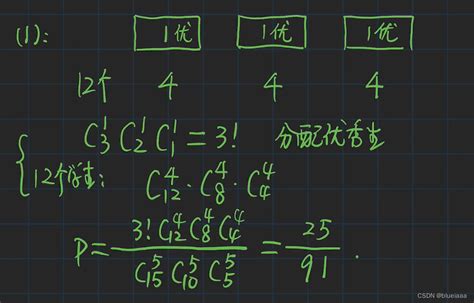 (1): 1优 1优 1优
12个 4 4 4
C₃¹ C₂¹ C₁¹ = 3! 分配优秀生
12个学生: C₁₂⁴ · C₈⁴ · C₄⁴
P = 3! C₁₂⁴ C₈⁴ C₄⁴ / C₁₅⁵ C₁₀⁵ C₅⁵ = 25/91 .
CSDN @blueiaaa